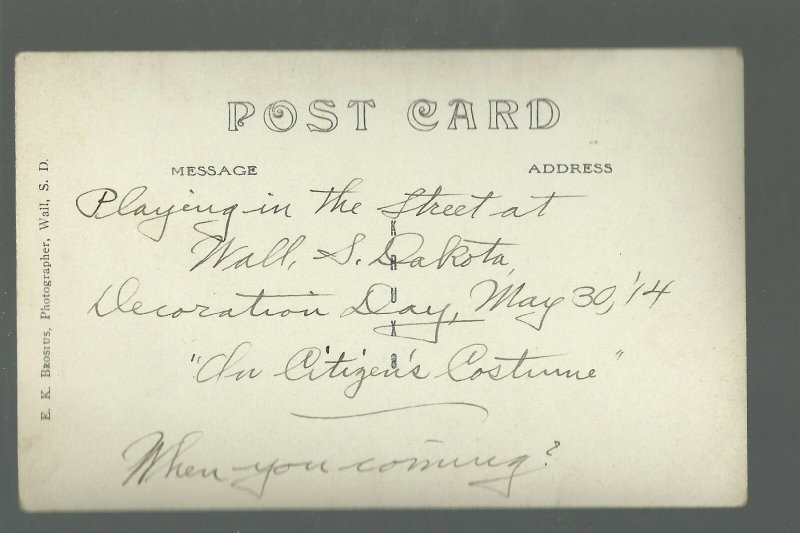 POST CARD
MESSAGE
ADDRESS
Playing in the Street at
Wall, S. Dakota,
Decoration Day, May 30, '14
"In Citizen's Costume"
When you coming?
KRUXO
E. K. BROSIUS, Photographer, Wall, S. D.